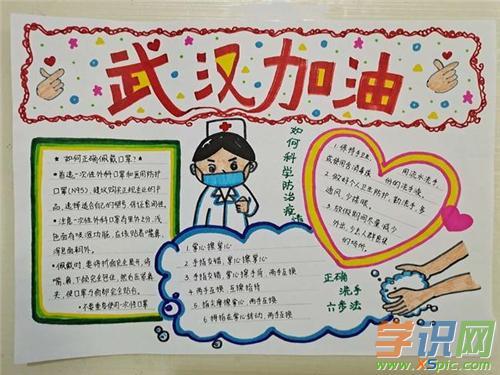 武汉加油
如何正确佩戴口罩?
首选一次性外科口罩和医用防护
口罩(N95),建议购买正规企业的产
品,选择适合自己的型号,保证密闭性。
注意:一次性外科口罩有里外2分,浅
色面有吸湿功能,应该贴着嘴鼻,
深色面朝外。
佩戴时,要将折面完全展开,将
嘴、鼻、下颌完全包住,然后压紧鼻
夹,使口罩与面部完全贴合。
不要重复使用一次性口罩
如何科学防治疫情
1.保持手卫生,
用流水洗手,
或使用含消毒液
的洗手液。
2.做好个人卫生防护,勤洗手,多
通风,少揉眼。
3.放假期间尽量减少
外出,少去人群密集
的场所。
1.掌心擦掌心
2.手指交错,掌心擦掌心
3.手指交错,掌心擦手背,两手互换
4.两手互握,互擦指背
5.指尖摩擦掌心,两手互换
6.拇指在掌心转动,两手互换
正确
洗手
六步法
学识网
XSpic.com